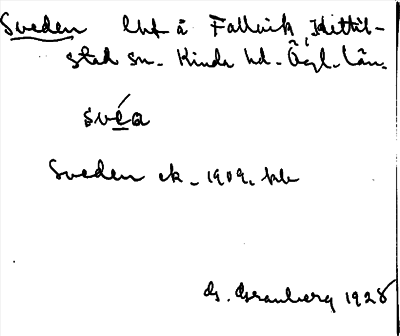 Sveden lht å Fallvik, Kättil-
stad sn. Kinda hd. Ögl. län.
svéa
Sveden ek. 1909. kb
G. Granberg 1928